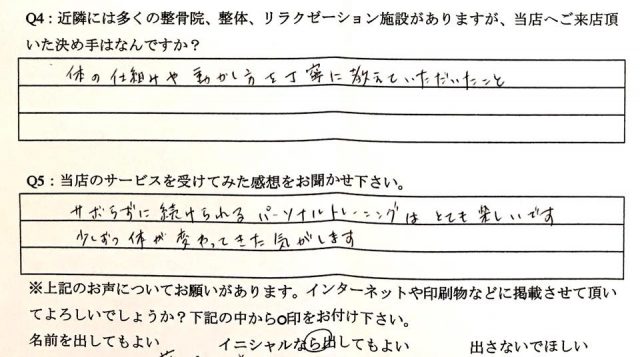 Q4：近隣には多くの整骨院、整体、リラクゼーション施設がありますが、当店へご来店頂
いた決め手はなんですか？
体の仕組けや動かし方を丁寧に教えていただいたこと
Q5：当店のサービスを受けてみた感想をお聞かせ下さい。
サボらずに続けられるパーソナルトレーニングはとても楽しいです
少しずつ体が変わってきた気がします
※上記のお声についてお願いがあります。インターネットや印刷物などに掲載させて頂い
てよろしいでしょうか？下記の中から○印をお付け下さい。
名前を出してもよい　イニシャルなら出してもよい　出さないでほしい